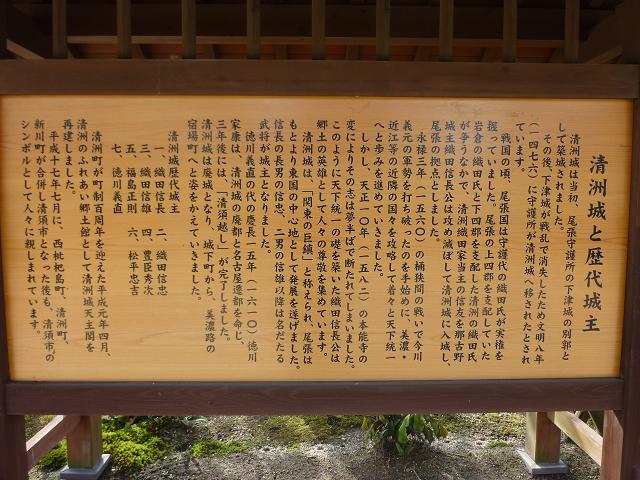 清洲城と歴代城主
清洲城は当初、尾張守護所の下津城の別郭と
して築城されました。
その後、下津城が戦乱で消失したため文明八年
（一四七六）に守護所が清洲城へ移されたとされ
ています。
戦国の頃、尾張国は守護代の織田氏が実権を
握っていました。尾張の上四郡を支配していた
岩倉の織田氏と下四郡を支配した清洲の織田氏
が争うなかで、清洲織田家当主の信友を那古野
城主織田信長公は攻め滅ぼして清洲城に入城し、
尾張の拠点としました。
永禄三年（一五六〇）の桶狭間の戦いで今川
義元の軍勢を打ち破ったのを手始めに、美濃・
近江等の近隣の国々を攻略して着々と天下統一
へと歩みを進めていきました。
しかし、天正一〇年（一五八二）の本能寺の
変によりその志は夢半ばで断たれてしまいました。
このように天下統一の礎を築いた織田信長公は
郷土の英雄として人々の尊敬を集めています。
清洲城は、「関東の巨鎮」と称えられ、尾張は
もとより東国の中心地として発展を遂げました。
信長の長男の信忠、二男の信雄以降は名だたる
武将が城主となりました。
徳川義直の代の慶長一五年（一六一〇）徳川
家康は、清洲城の廃都と名古屋遷都を命じ、
三年後には、「清須越し」が完了しました。
清洲城は廃城となり、城下町から、美濃路の
宿場町へと姿をかえていきました。
清洲城歴代城主
一、織田信長　二、織田信忠
三、織田信雄　四、豊臣秀次
五、福島正則　六、松平忠吉
七、徳川義直
清洲町が町制百周年を迎えた平成元年四月、
清洲のふれあい郷土館として清洲城天主閣を
再建しました。
平成十七年七月に、西枇杷島町、清洲町、
新川町が合併し清須市となった後も、清須市の
シンボルとして人々に親しまれています。